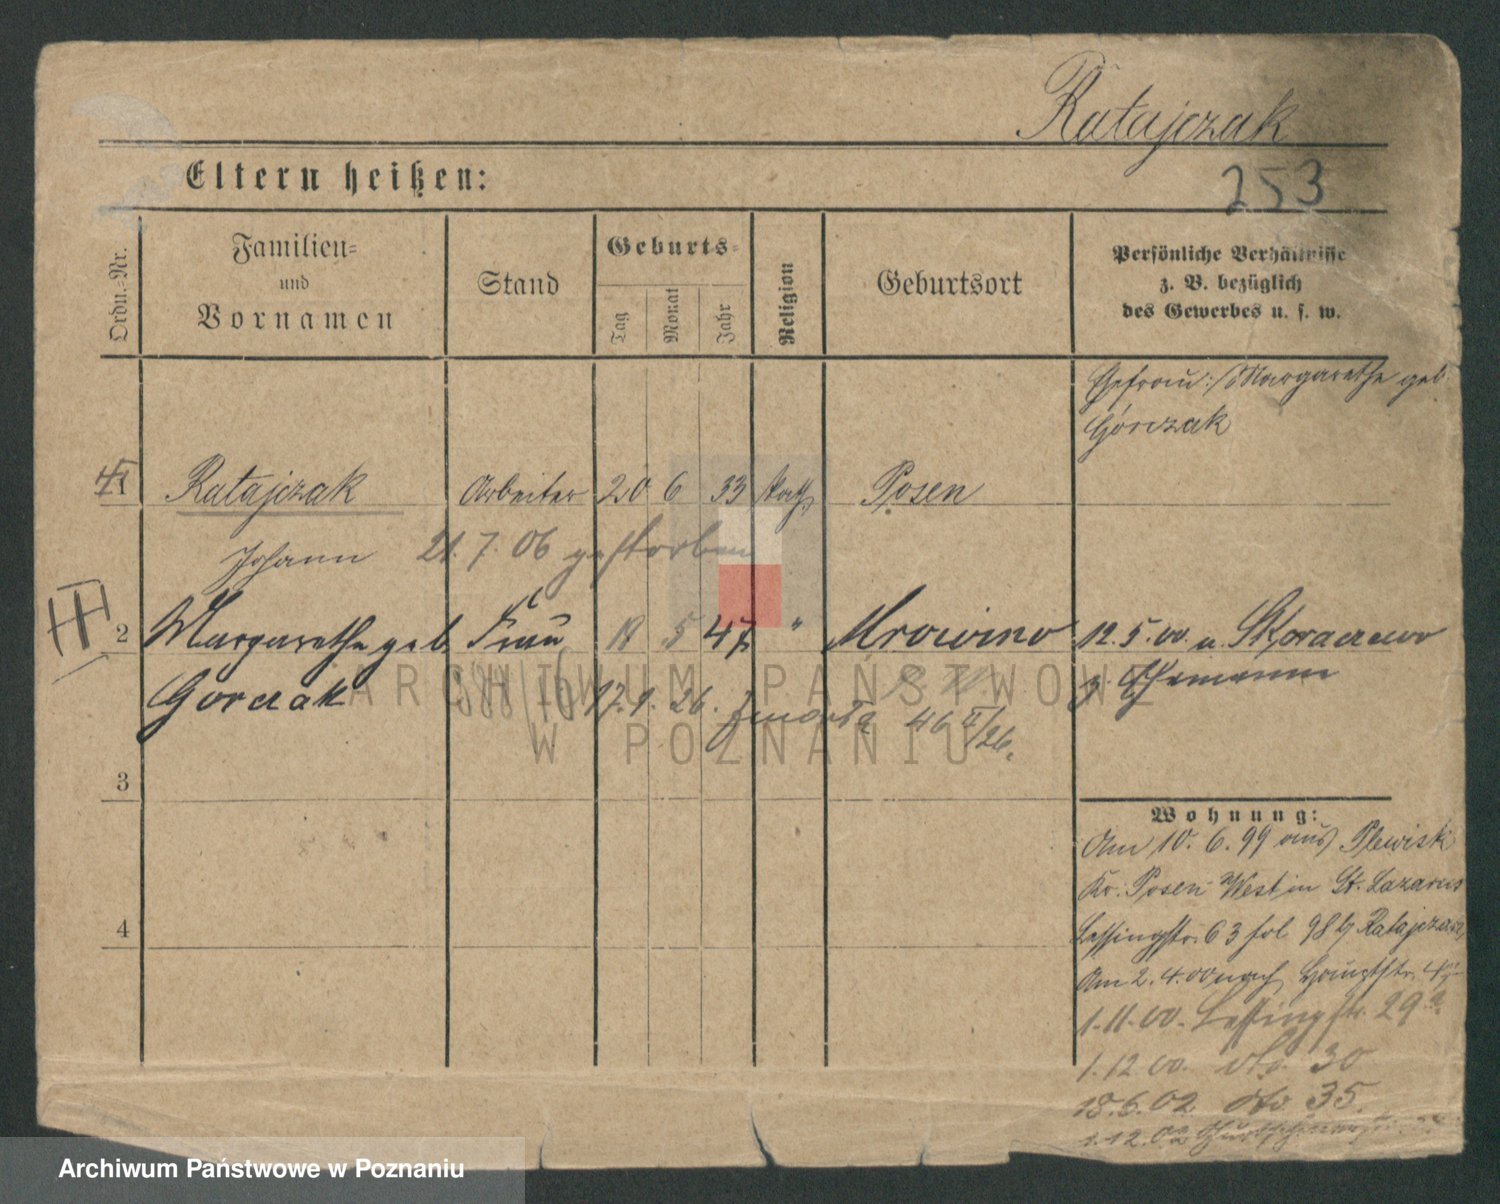 Ratajczak
Eltern heißen:
253
Ordn.=Nr.
Familien=
und
Vornamen
Stand
Geburts=
Tag
Monat
Jahr
Religion
Geburtsort
Persönliche Verhältnisse
z. B. bezüglich
des Gewerbes u. s. w.
Ehefrau: Margarethe geb.
Górczak
1 Ratajczak Arbeiter 20 6 33 kath. Posen
Johann 21. 7. 06 gestorben
2 Margarethe geb. Frau 18 5 47 " Mrowino 12. 5. 00 n.
Gorczak 17. 9. 26. zmarła 46
z. Ehemann
ARCHIWUM PAŃSTWOWE
W POZNANIU
3
Wohnung:
Am 10. 6. 99 aus Plewisk
Kr. Posen West in St. Lazarus
Lessingstr. 63 fol 98 Ratajczak
4
Am 2. 4. 00 nach
1. 11. 00. Lessingstr. 29a
1. 12. 00. dto. 30
18. 6. 02 dto 35.
1. 12. 02
Archiwum Państwowe w Poznaniu